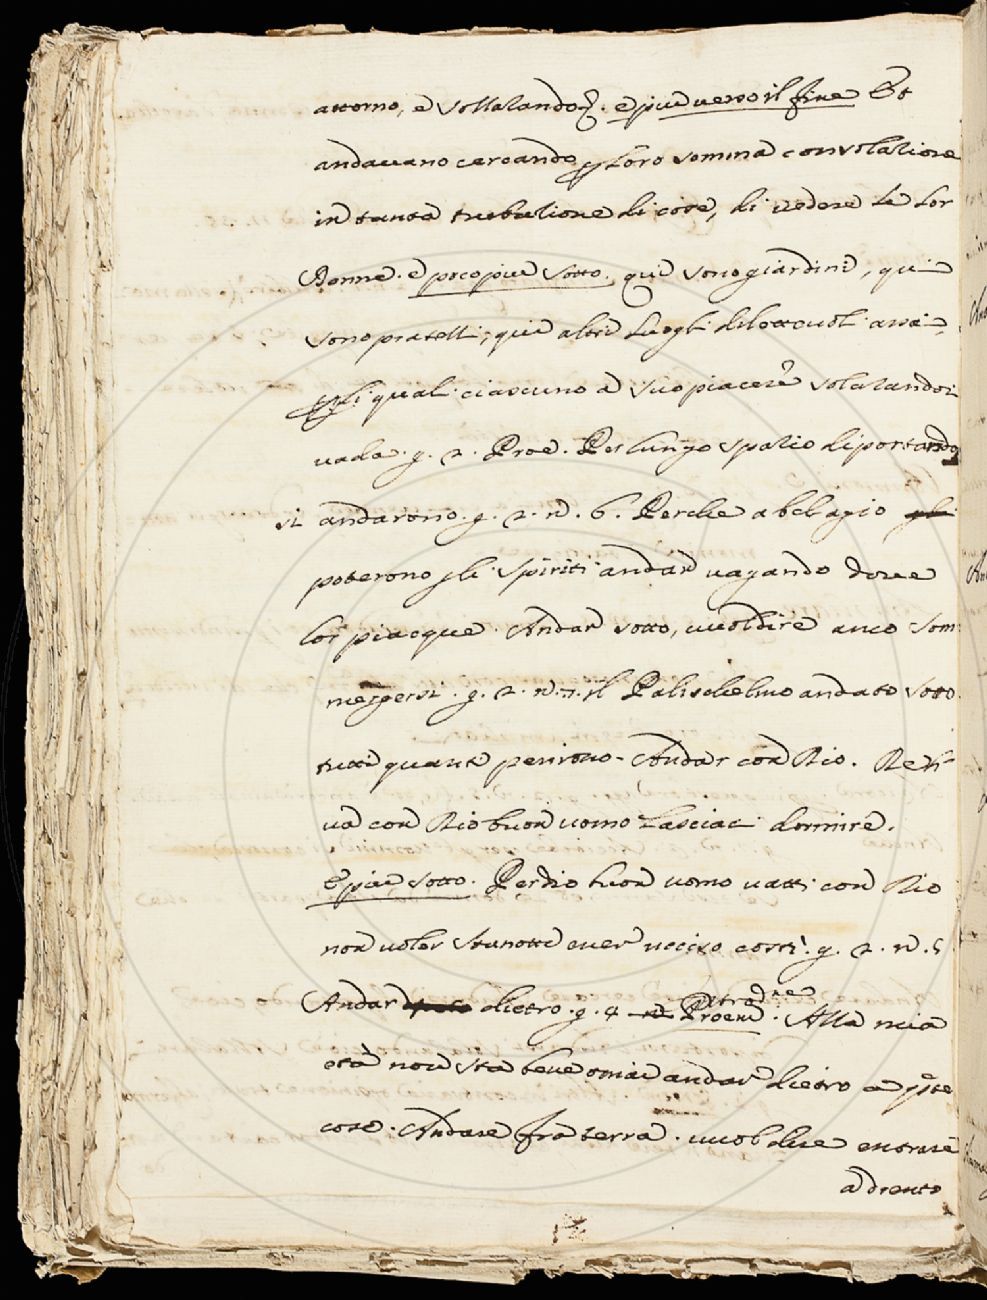 attorno, e sollazando. e più verso il fine Et
andavano cercando loro somma consolazione
in tanta tribulazione di cose, di vedere le lor
Donne. e poco più sotto. qui sono giardini, qui
sono pratelli, qui altri luoghi dilettevoli assai,
li quali ciascuno a suo piacere sollazandosi
vada. g. 2. Proe. Per lungo spazio diportando
si andarono. g. 2. n. 6. Perche a bell agio
poterono gli spiriti andar vagando dove
lor piacque. Andar sotto, vuol dire anco som
mergersi. g. 2. n. 7. il Palischelmo andato sotto
tutti quanti perirono. Andar con Dio. Deh
va con Dio buon uomo lasciaci dormire.
E più sotto. Per Dio buon uomo vatti con Dio
non voler stanotte esser ucciso costì. g. 2. n. 5
Andar dietro. g. 4 Proem. Alla mia
età non sta bene omai andar dietro a qste
cose. Andare fra terra. vuol dire entrare
a drento